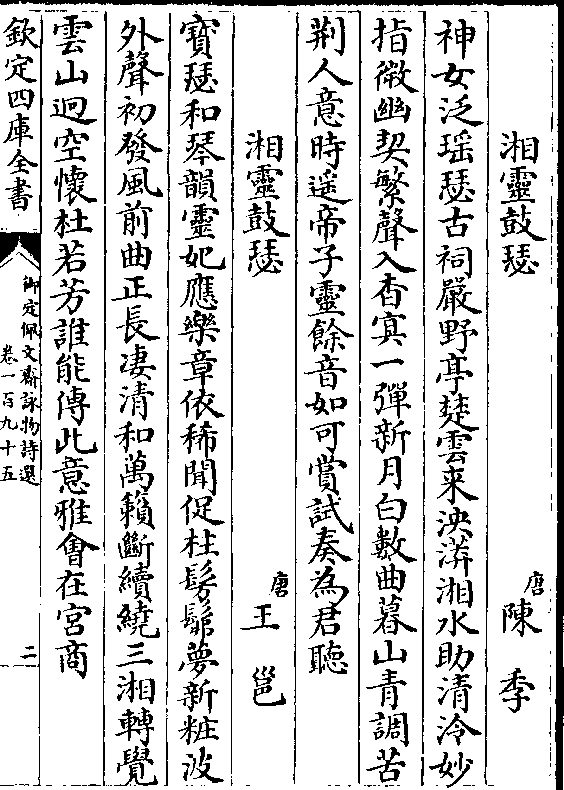 湘靈鼓瑟 唐 陳季
神女泛瑶瑟古祠嚴野亭楚雲来泱漭湘水助清泠妙
指徵幽契繁聲入杳㝠一彈新月白數曲暮山青調苦
荆人意時遥帝子靈餘音如可賞試奏為君聽
湘靈鼓瑟 唐 王邕
寳瑟和琴韻靈妃應樂章依稀聞促柱髣髴夢新粧波
外聲初發風前曲正長凄清和萬籟斷續繞三湘轉覺
雲山迥空懷杜若芳誰能傳此意雅會在宮商
欽定四庫全書
御定佩文齋詠物詩選
卷一百九十五
二